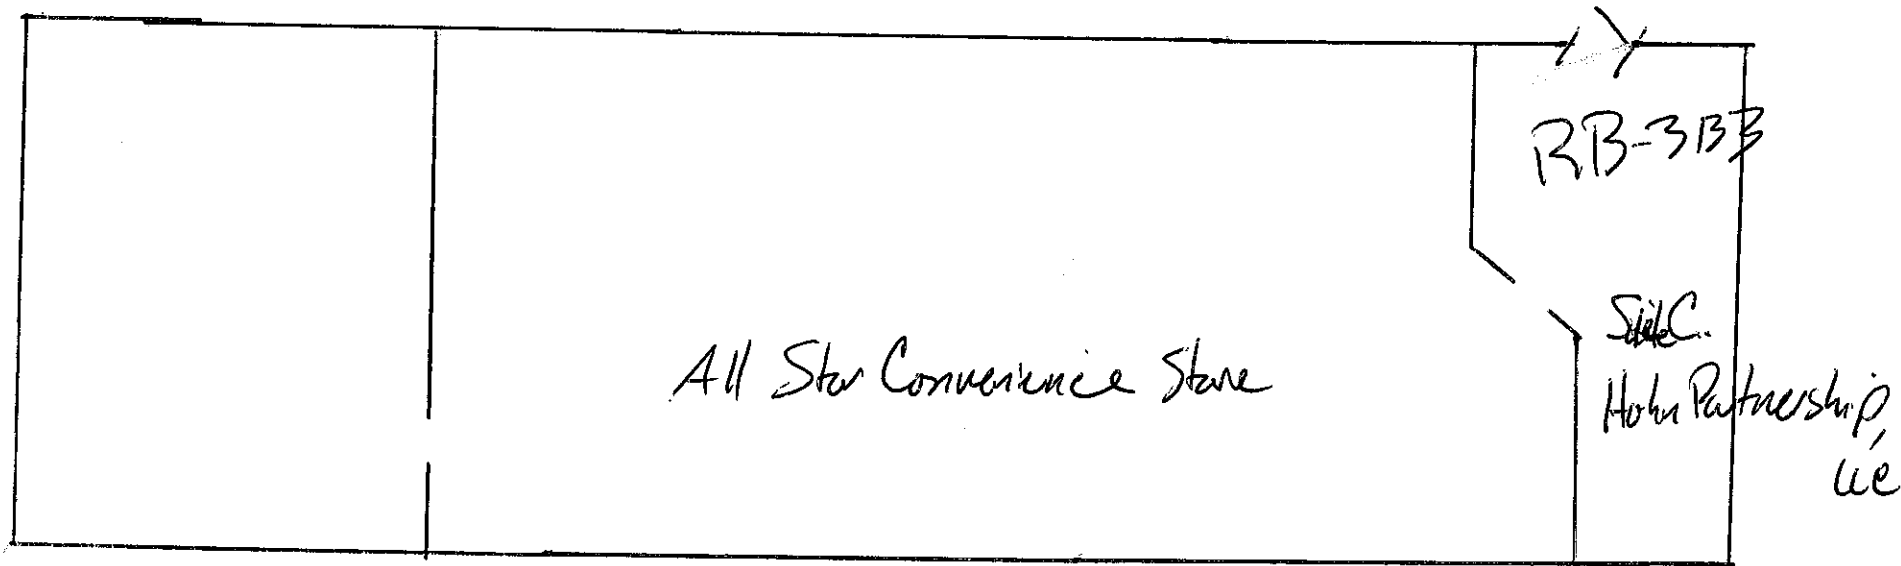 RB-3BB
All Star Convenience Store
C.
Partnership,
LLC